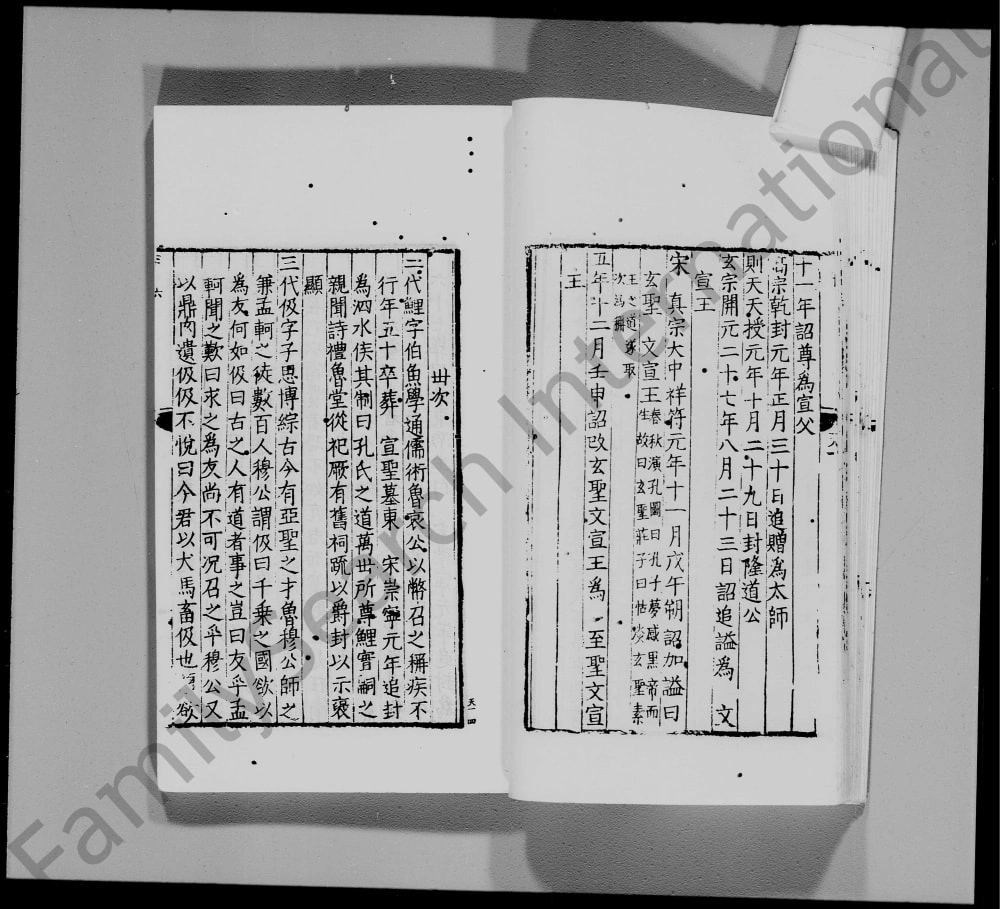 十一年詔尊為宣父
高宗乾封元年正月三十日追贈為太師
則天天授元年十月二十九日封隆道公
玄宗開元二十七年八月二十三日詔追謚為 文
宣王
宋 真宗大中祥符元年十一月戊午朔詔加謚曰
玄聖文宣王春秋演孔圖曰孔子夢感黑帝而
生故曰玄聖莊子曰恬淡玄聖素
王之道遂取
次為稱
五年十二月壬申詔改玄聖文宣王為 至聖文宣
王
世次
二代鯉字伯魚學通儒術魯哀公以幣召之稱疾不
行年五十卒葬 宣聖墓東 宋崇寧元年追封
為泗水侯其制曰孔氏之道萬世所尊鯉實嗣之
親聞詩禮魯堂從祀厥有舊祠疏以爵封以示褒
顯
三代伋字子思博綜古今有亞聖之才魯穆公師之
兼孟軻之徒數百人穆公謂伋曰千乗之國欲以
為友何如伋曰古之人有道者事之豈曰友乎孟
軻聞之歎曰求之為友尚不可况召之乎穆公又
以鼎肉遺伋伋不悅曰今君以犬馬畜伋也 欲
六
FamilySearch International